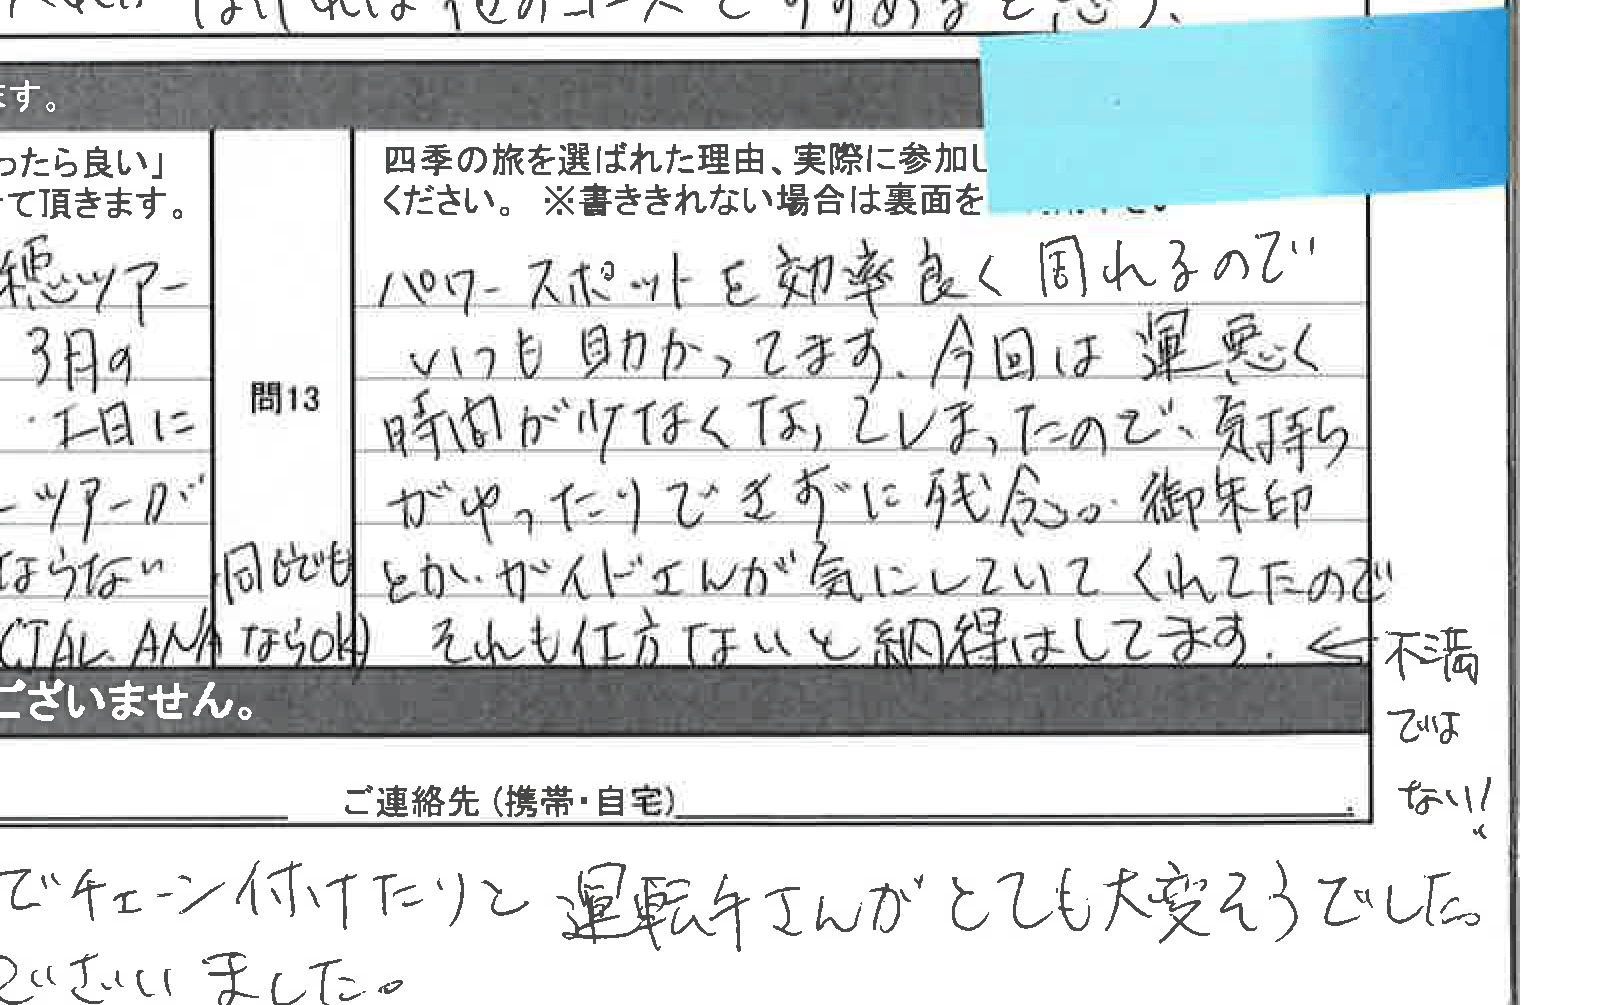 なければ他のコースをすすめると思う、
ます。
ったら良い」
て頂きます。
穂ツアー
3月の
工目に
ーツアーが
ならない
同じでも
(JAL. ANAならOK)
問13
四季の旅を選ばれた理由、実際に参加し
ください。 ※書ききれない場合は裏面を
パワースポットを効率良く周れるので
いつも助かってます。今回は運悪く
時間が少なくなってしまったので、気持ち
がゆったりできずに残念。御朱印
とか、ガイドさんが気にしていてくれてたので
それも仕方ないと納得はしてます。←
不満
では
ない!!
ございません。
ご連絡先(携帯・自宅)
でチェーン付けたりと運転手さんがとても大変そうでした。
ございました。